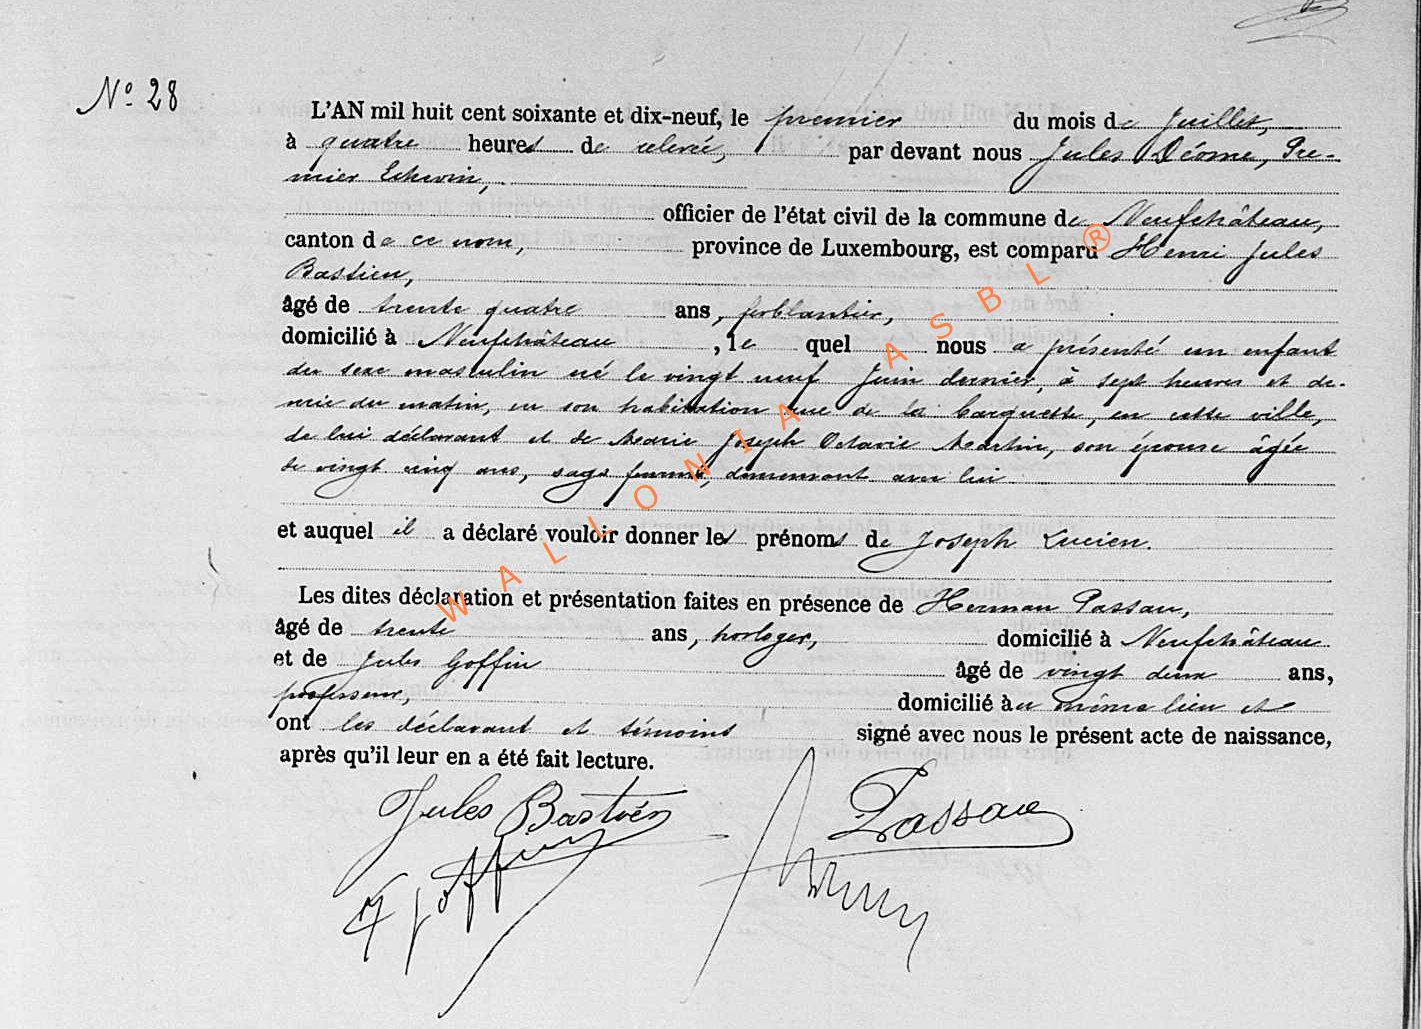 N° 28
L'AN mil huit cent soixante et dix-neuf, le premier du mois de Juillet,
à quatre heures de relevée, par devant nous Jules Déome, Pre-
mier Echevin,
officier de l'état civil de la commune de Neufchâteau,
canton de ce nom, province de Luxembourg, est comparu Henri Jules
Bastien,
âgé de trente quatre ans, ferblantier,
domicilié à Neufchâteau, le quel nous a présenté un enfant
du sexe masculin né le vingt neuf Juin dernier, à sept heures et de-
mie du matin, en son habitation rue de la barquette, en cette ville,
de lui déclarant et de Marie Joseph Octavie Martin, son épouse âgée
de vingt cinq ans, sage femme, demeurant avec lui
et auquel il a déclaré vouloir donner les prénoms de Joseph Lucien.
Les dites déclaration et présentation faites en présence de Herman Passau,
âgé de trente ans, horloger, domicilié à Neufchâteau
et de Jules Goffin âgé de vingt deux ans,
professeur, domicilié au même lieu et
ont les déclarant et témoins signé avec nous le présent acte de naissance,
après qu'il leur en a été fait lecture.
Jules Bastien
Passau
J Goffin
WALLONIA ASBL ®